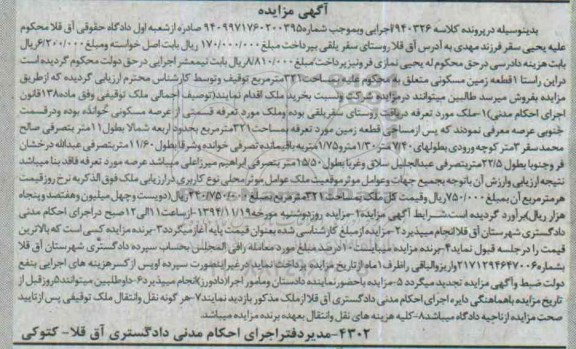 آگهی مزایده
بدینوسیله در پرونده کلاسه ۹۴۰۳۲۶ اجرایی وبموجب شماره ۹۴۰۹۹۷۱۷۶۰۲۰۰۳۹۵ صادره از شعبه اول دادگاه حقوقی آق قلا محکوم
علیه یحیی سقر فرزند مهدی به آدرس آق قلا روستای سقر یلقی بپرداخت مبلغ ۱۷۰/۰۰۰/۰۰۰ ریال بابت اصل خواسته ومبلغ ۶/۲۰۰/۰۰۰ ریال
بابت هزینه دادرسی در حق محکوم له یحیی نمازی فر ونیز پرداخت مبلغ ۸/۸۱۰/۰۰۰ ریال بابت نیمعشر اجرایی در حق دولت محکوم گردیده است
در این راستا ۱ قطعه زمین مسکونی متعلق به محکوم علیه به مساحت ۳۲۱ مترمربع توقیف وتوسط کارشناس محترم ارزیابی گردیده که از طریق
مزایده بفروش میرسد طالبین میتوانند در مزایده شرکت ونسبت بخرید ملک اقدام نمایند (توصیف اجمالی ملک توقیفی وفق ماده ۱۳۸ قانون
اجرای احکام مدنی) ۱-ملک مورد تعرفه دریافت روستای سقر یلقی بوده وملک مورد تعرفه قسمتی از عرصه مسکونی خوانده بوده ودر قسمت
جنوبی عرصه معرفی نمودند که پس از مساحی قطعه زمین مورد تعرفه بمساحت ۳۲۱ مترمربع بحدود اربعه شمالا بطول ۱۱ متر بتصرفی صالح
محمد سقر ۳ متر کوچه ورودی بطولهای ۷/۴۰ متر ۱/۳۰ متر و ۱/۷۵ متر به باقیمانده تصرفی خوانده وشرقا بطول ۱۱/۶۰ متر بتصرفی عبدالله درخشان
فر وجنوبا بطول ۲۲/۵ متر بتصرفی عبدالجلیل سلاق وغربا بطول ۱۵/۵۰ متر بتصرفی ابراهیم میرزاعلی میباشد عرصه مورد تعرفه فاقد بنا میباشد
نتیجه ارزیابی وارزش آن باتوجه بجمیع جهات وعوامل موثر موقعیت ملک عوامل موثر محلی نوع کاربری در ارزیابی ملک فوق الذکر به نرخ روز قیمت
هر مترمربع آن بمبلغ ۷۵۰/۰۰۰ ریال وقیمت کل ملک بمساحت ۳۲۱ مترمربع بمبلغ ۲۴۰/۷۵۰/۰۰۰ ریال (دویست وچهل میلیون وهفتصد وپنجاه
هزار ریال) برآورد گردیده است شرایط آگهی مزایده ۱-مزایده روز دوشنبه مورخه ۱۳۹۴/۱۱/۱۹ از ساعت ۱۱ الی ۱۲ صبح در اجرای احکام مدنی
دادگستری شهرستان آق قلا انجام میپذیرد ۲-مزایده از مبلغ کارشناسی شده بعنوان قیمت پایه آغاز میگردد ۳-برنده مزایده کسی است که بالاترین
قیمت را در جلسه قبول نماید ۴-برنده مزایده میبایست ۱۰ درصد مبلغ مورد معامله را فی المجلس بحساب سپرده دادگستری شهرستان آق قلا
بشماره ۲۱۷۱۲۹۴۶۴۷۰۰۶ واریز والباقی را ظرف ۱ ماه از تاریخ مزایده پرداخت نماید در غیر اینصورت سپرده اوپس از کسر هزینه های اجرایی بنفع
دولت ضبط وآگهی مزایده تجدید میگردد ۵-مزایده باحضور نماینده دادستان ومامور اجرا (دادورز) انجام میپذیرد ۶-داوطلبین میتوانند ۵ روز قبل از
تاریخ مزایده باهماهنگی دایره اجرای احکام مدنی دادگستری آق قلا از ملک مذکور بازدید نمایند ۷-هر گونه نقل وانتقال ملک توقیفی پس از تایید
صحت مزایده از ناحیه دادگاه میباشد ۸-کلیه هزینه های نقل وانتقال بعهده برنده مزایده میباشد.
۴۳۰۲-مدیر دفتر اجرای احکام مدنی دادگستری آق قلا- کتوکی